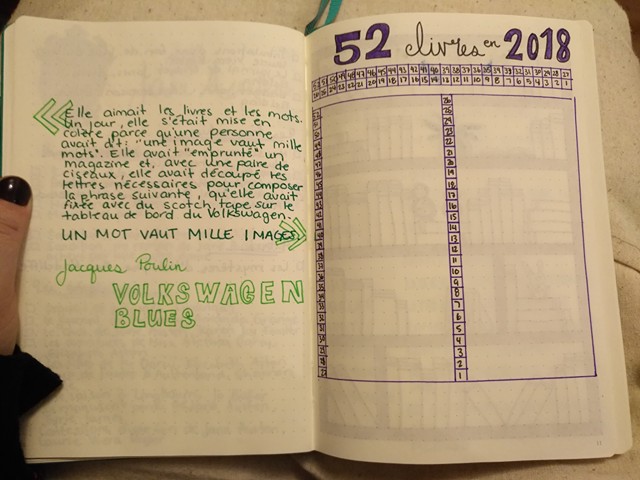 « Elle aimait les livres et les mots.
Un jour, elle s'était mise en
colère parce qu'une personne
avait dit: "une image vaut mille
mots". Elle avait "emprunté" un
magazine et, avec une paire de
ciseaux, elle avait découpé les
lettres nécessaires pour composer
la phrase suivante, qu'elle avait
fixée avec du scotch tape sur le
tableau de bord du Volkswagen.
UN MOT VAUT MILLE IMAGES. »
Jacques Poulin
VOLKSWAGEN
BLUES
52 livres en 2018
52 51 50 49 48 47 46 45 44 43 42 41 40 39 38 37 36 35 34 33 32 31 30 29 28 27
26 25 24 23 22 21 20 19 18 17 16 15 14 13 12 11 10 9 8 7 6 5 4 3 2 1
26
25
24
23
22
21
20
19
18
17
16
15
14
13
12
11
10
9
8
7
6
5
4
3
2
1